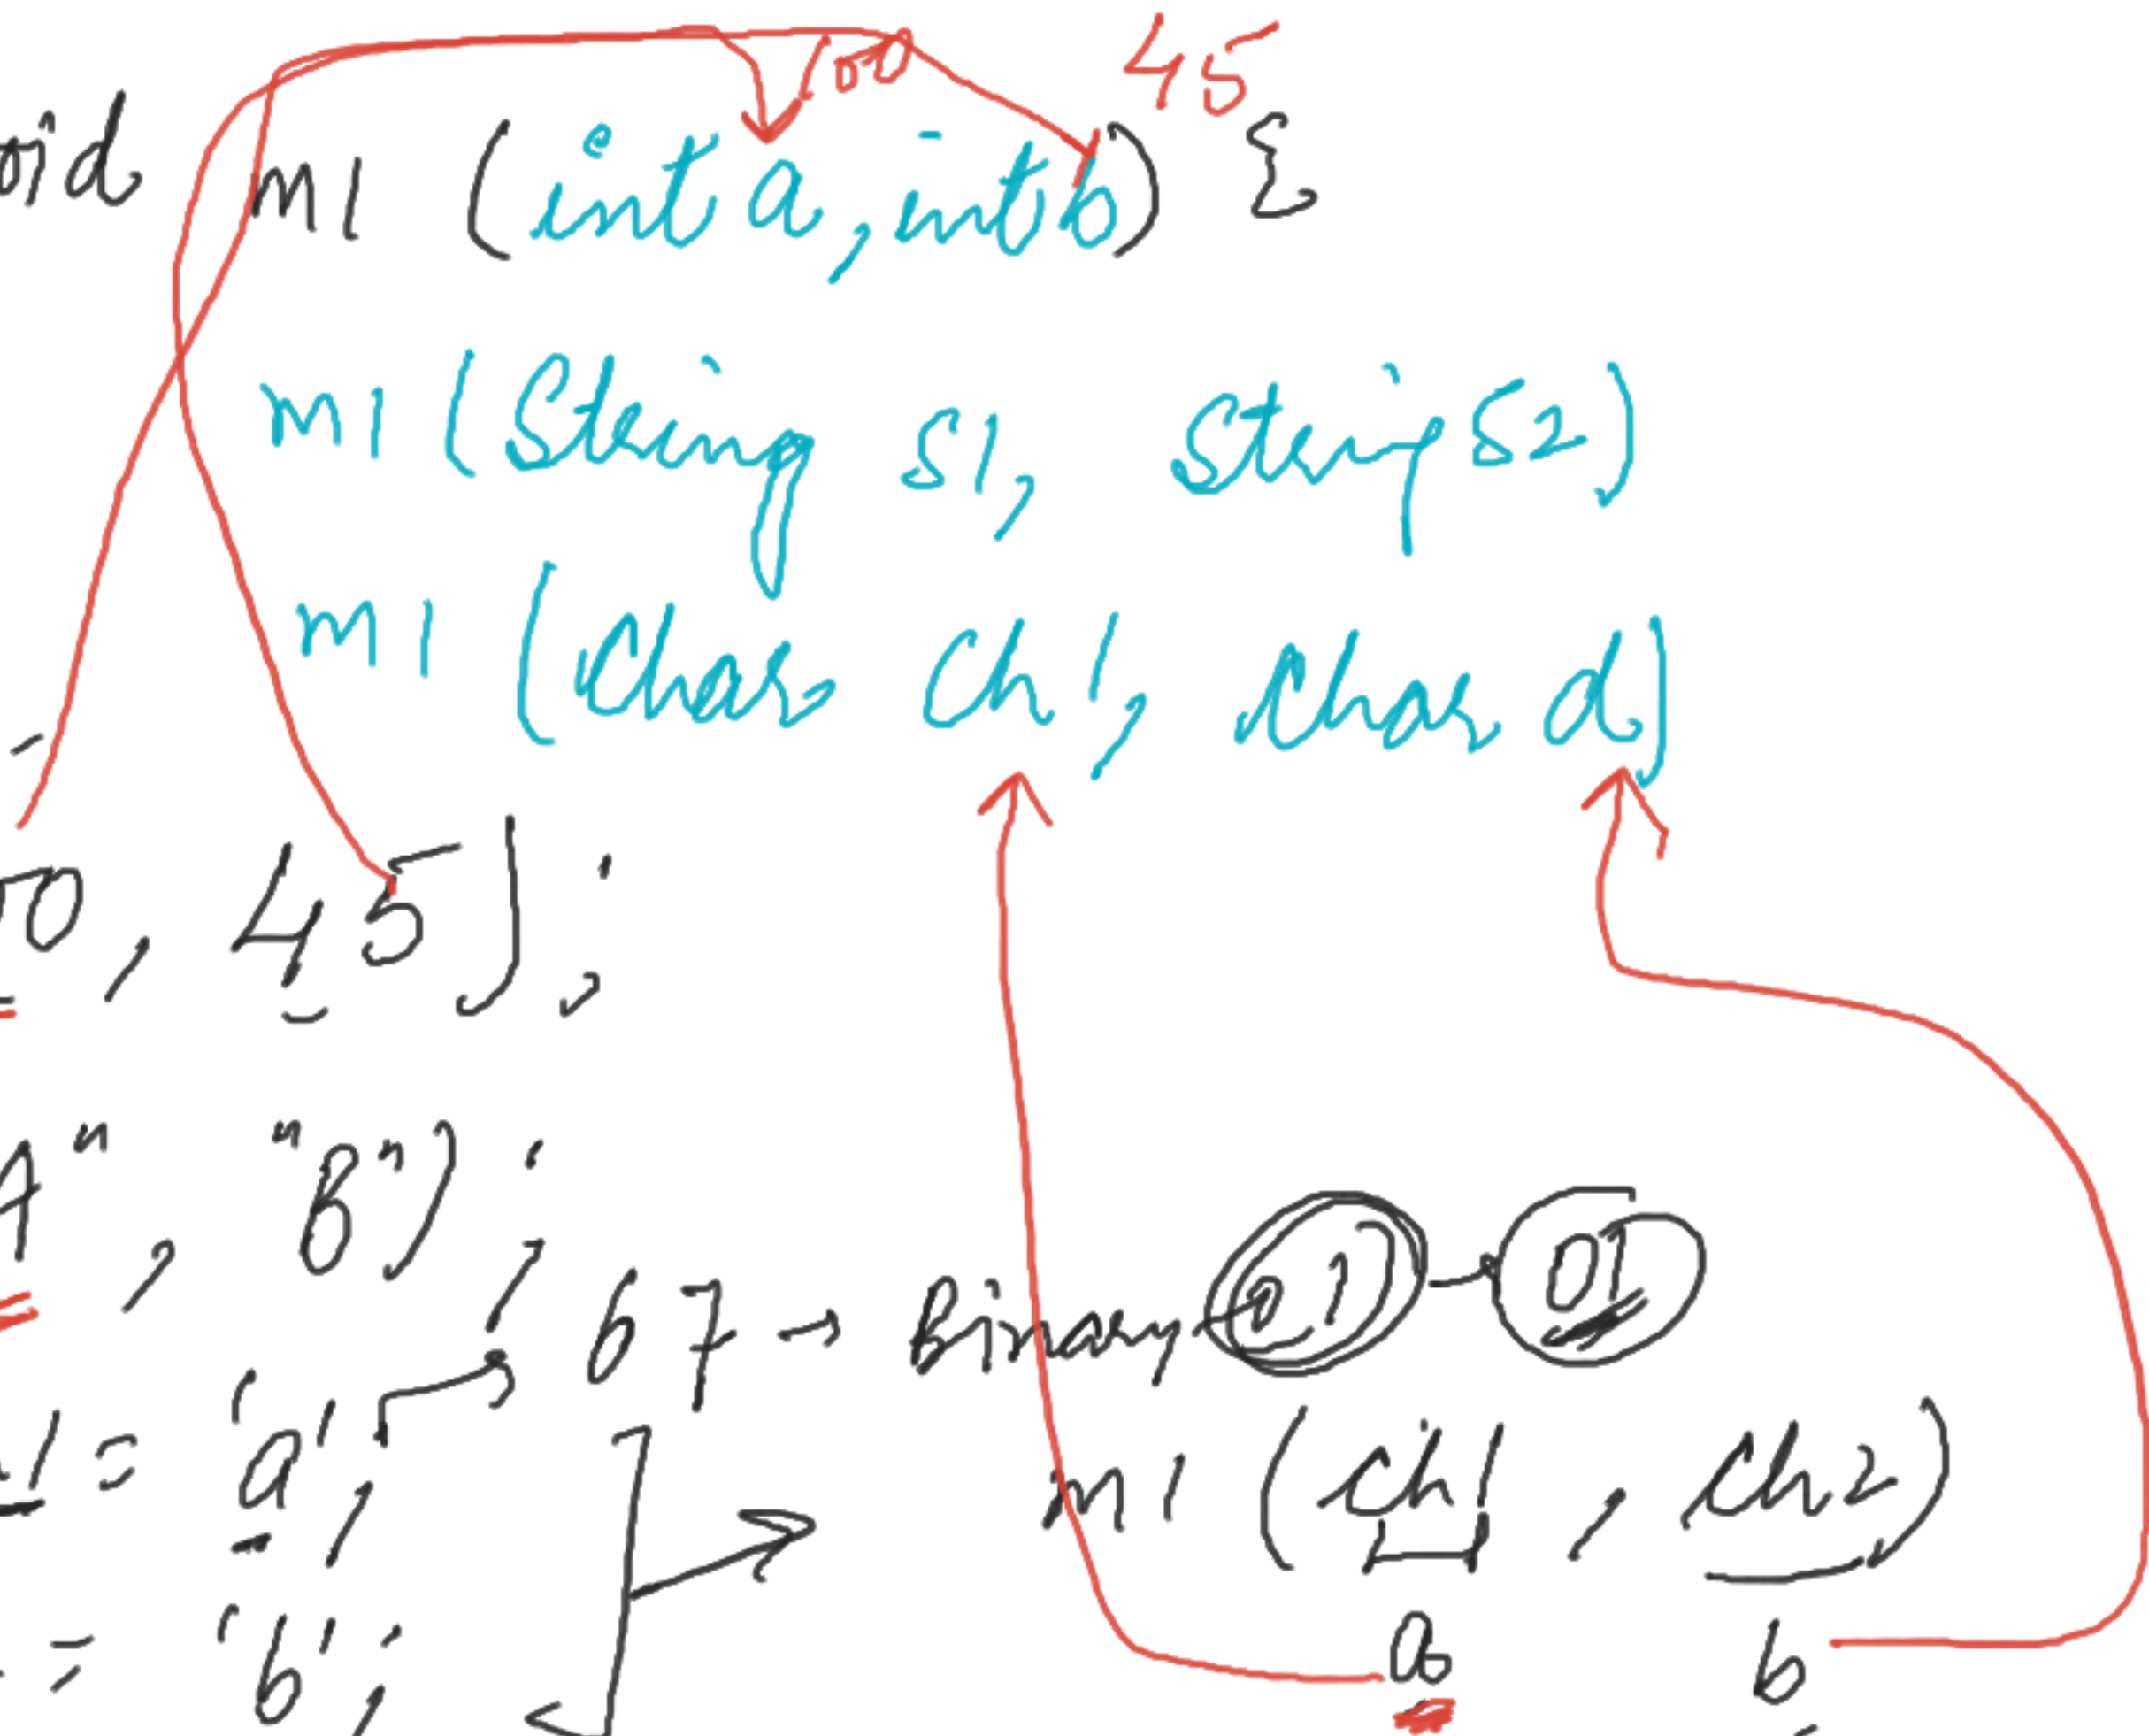 45
oid m1 (int a, int b) {
m1 (String s1, String s2)
m1 (Char ch1, char d)
0, 45);
A", "B");
67 → Binary 01 - 01
1 = 'a';
m1 (ch1, ch2)
= 'b';
a b